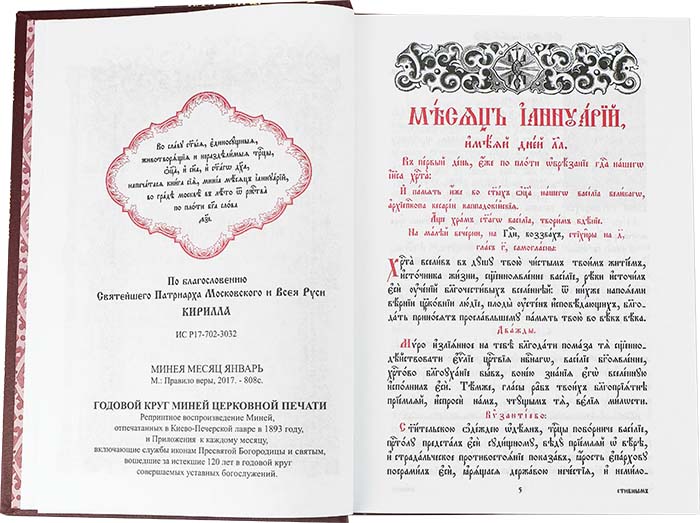 Во славу ст҃ы́ѧ, є҆диносꙋ́щныѧ,
животворѧ́щіѧ и҆ нераздѣ́лимыѧ трⷪ҇цы,
ѻ҆ц҃а̀, и҆ сн҃а, и҆ ст҃а́гѡ дх҃а,
напеча́тасѧ кни́га сїѧ̀, мине́а мѣ́сѧцъ і҆аннꙋа́рїй,
во гра́дѣ москвѣ̀ въ лѣ́то ѿ рж҇тва̀
по пло́ти бг҃а сло́ва
По благословению
Святейшего Патриарха Московского и Всея Руси
КИРИЛЛА
ИС Р17-702-3032
МИНЕЯ МЕСЯЦ ЯНВАРЬ
М.: Правило веры, 2017. - 808с.
ГОДОВОЙ КРУГ МИНЕЙ ЦЕРКОВНОЙ ПЕЧАТИ
Репринтное воспроизведение Миней,
отпечатанных в Киево-Печерской лавре в 1893 году,
и Приложения к каждому месяцу,
включающие службы иконам Пресвятой Богородицы и святым,
вошедшие за истекшие 120 лет в годовой круг
совершаемых уставных богослужений.
МѢ́СѦЦЪ І҆АННꙊА́РЇЙ,
и҆мѣ́ѧй дні́й л҃а.
Въ пе́рвый де́нь, є҆́же по пло́ти ѡ҆брѣ́занїе гдⷭ҇а на́шегѡ
і҆и҃са хрⷭ҇та̀:
И҆ па́мѧть и҆́же во ст҃ы́хъ ѻ҆ц҃а̀ на́шегѡ васі́лїа вели́кагѡ,
а҆рхїепⷭ҇копа кесарі́и каппадокі́йскїѧ.
А҆́ще хра́мъ ст҃а́гѡ васі́лїа, твори́мъ бдѣ́нїе.
На ма́лѣй вече́рни, на Гдⷭ҇и, воззва́хъ, стїхи̑ры на д҃,
гла́съ г҃, самогла́сны:
Хрⷭ҇та̀ всели́въ въ дꙋ́шꙋ твою̀ чи́стымъ твои́мъ житїе́мъ,
и҆сто́чника жи́зни, сщ҃енноѧвле́нне васі́лїе, рѣ́ки и҆сточи́лъ
є҆сѝ ᲂу҆че́нїй благочести́выхъ вселе́ннѣй: ѿ ни́хже напоѧ́еми
вѣ́рнїи цр҃ко́внїи лю́дїе, плоды̀ ᲂу҆сте́нъ и҆сповѣ́дающихъ, благ-
да́ть прино́сѧтъ просла́вльшемꙋ па́мѧть твою̀ во вѣ́ки вѣ́ка.
Два́жды.
Мѵ́ро и҆злїѧ́нное на тебѣ̀ бл҃года́ти пома́за тѧ̀ сщ҃енно-
дѣ́йствовати є҆ѵⷢ҇лїе црⷭ҇твїѧ нбⷭ҇нагѡ, васі́лїе бг҃оѧвле́нне,
хрⷭ҇то́во бл҃гоꙋха́нїе бы́въ, воне́ю зна́нїѧ є҆гѡ̀ вселе́ннꙋю
и҆спо́лнилъ є҆сѝ. Тѣ́мже, гла́сы ра̑бъ твои́хъ бл҃гопрїѧ́тнѣ
прїе́млѧй, и҆спросѝ на́мъ, чтꙋ́щымъ тѧ̀, ве́лїѧ ми́лости.
Вѷза́нтїево:
Ст҃и́тельскою ѻ҆де́ждею ѡ҆дѣ́ѧнъ, трⷪ҇цы побо́рниче васі́лїе,
прⷭ҇то́лꙋ предста́лъ є҆сѝ сꙋди́щномꙋ, бѣдꙋ̀ прїе́млѧй ѡ҆ вѣ́рѣ,
и҆ страда́льческое противостоѧ́нїе показа́въ, ꙗ҆́рость є҆па́рховꙋ
посрами́лъ є҆сѝ, ꙗ҆рѧ́щасѧ держа́вою нече́стїѧ, и҆ неми́ло-
5
сти́внымъ